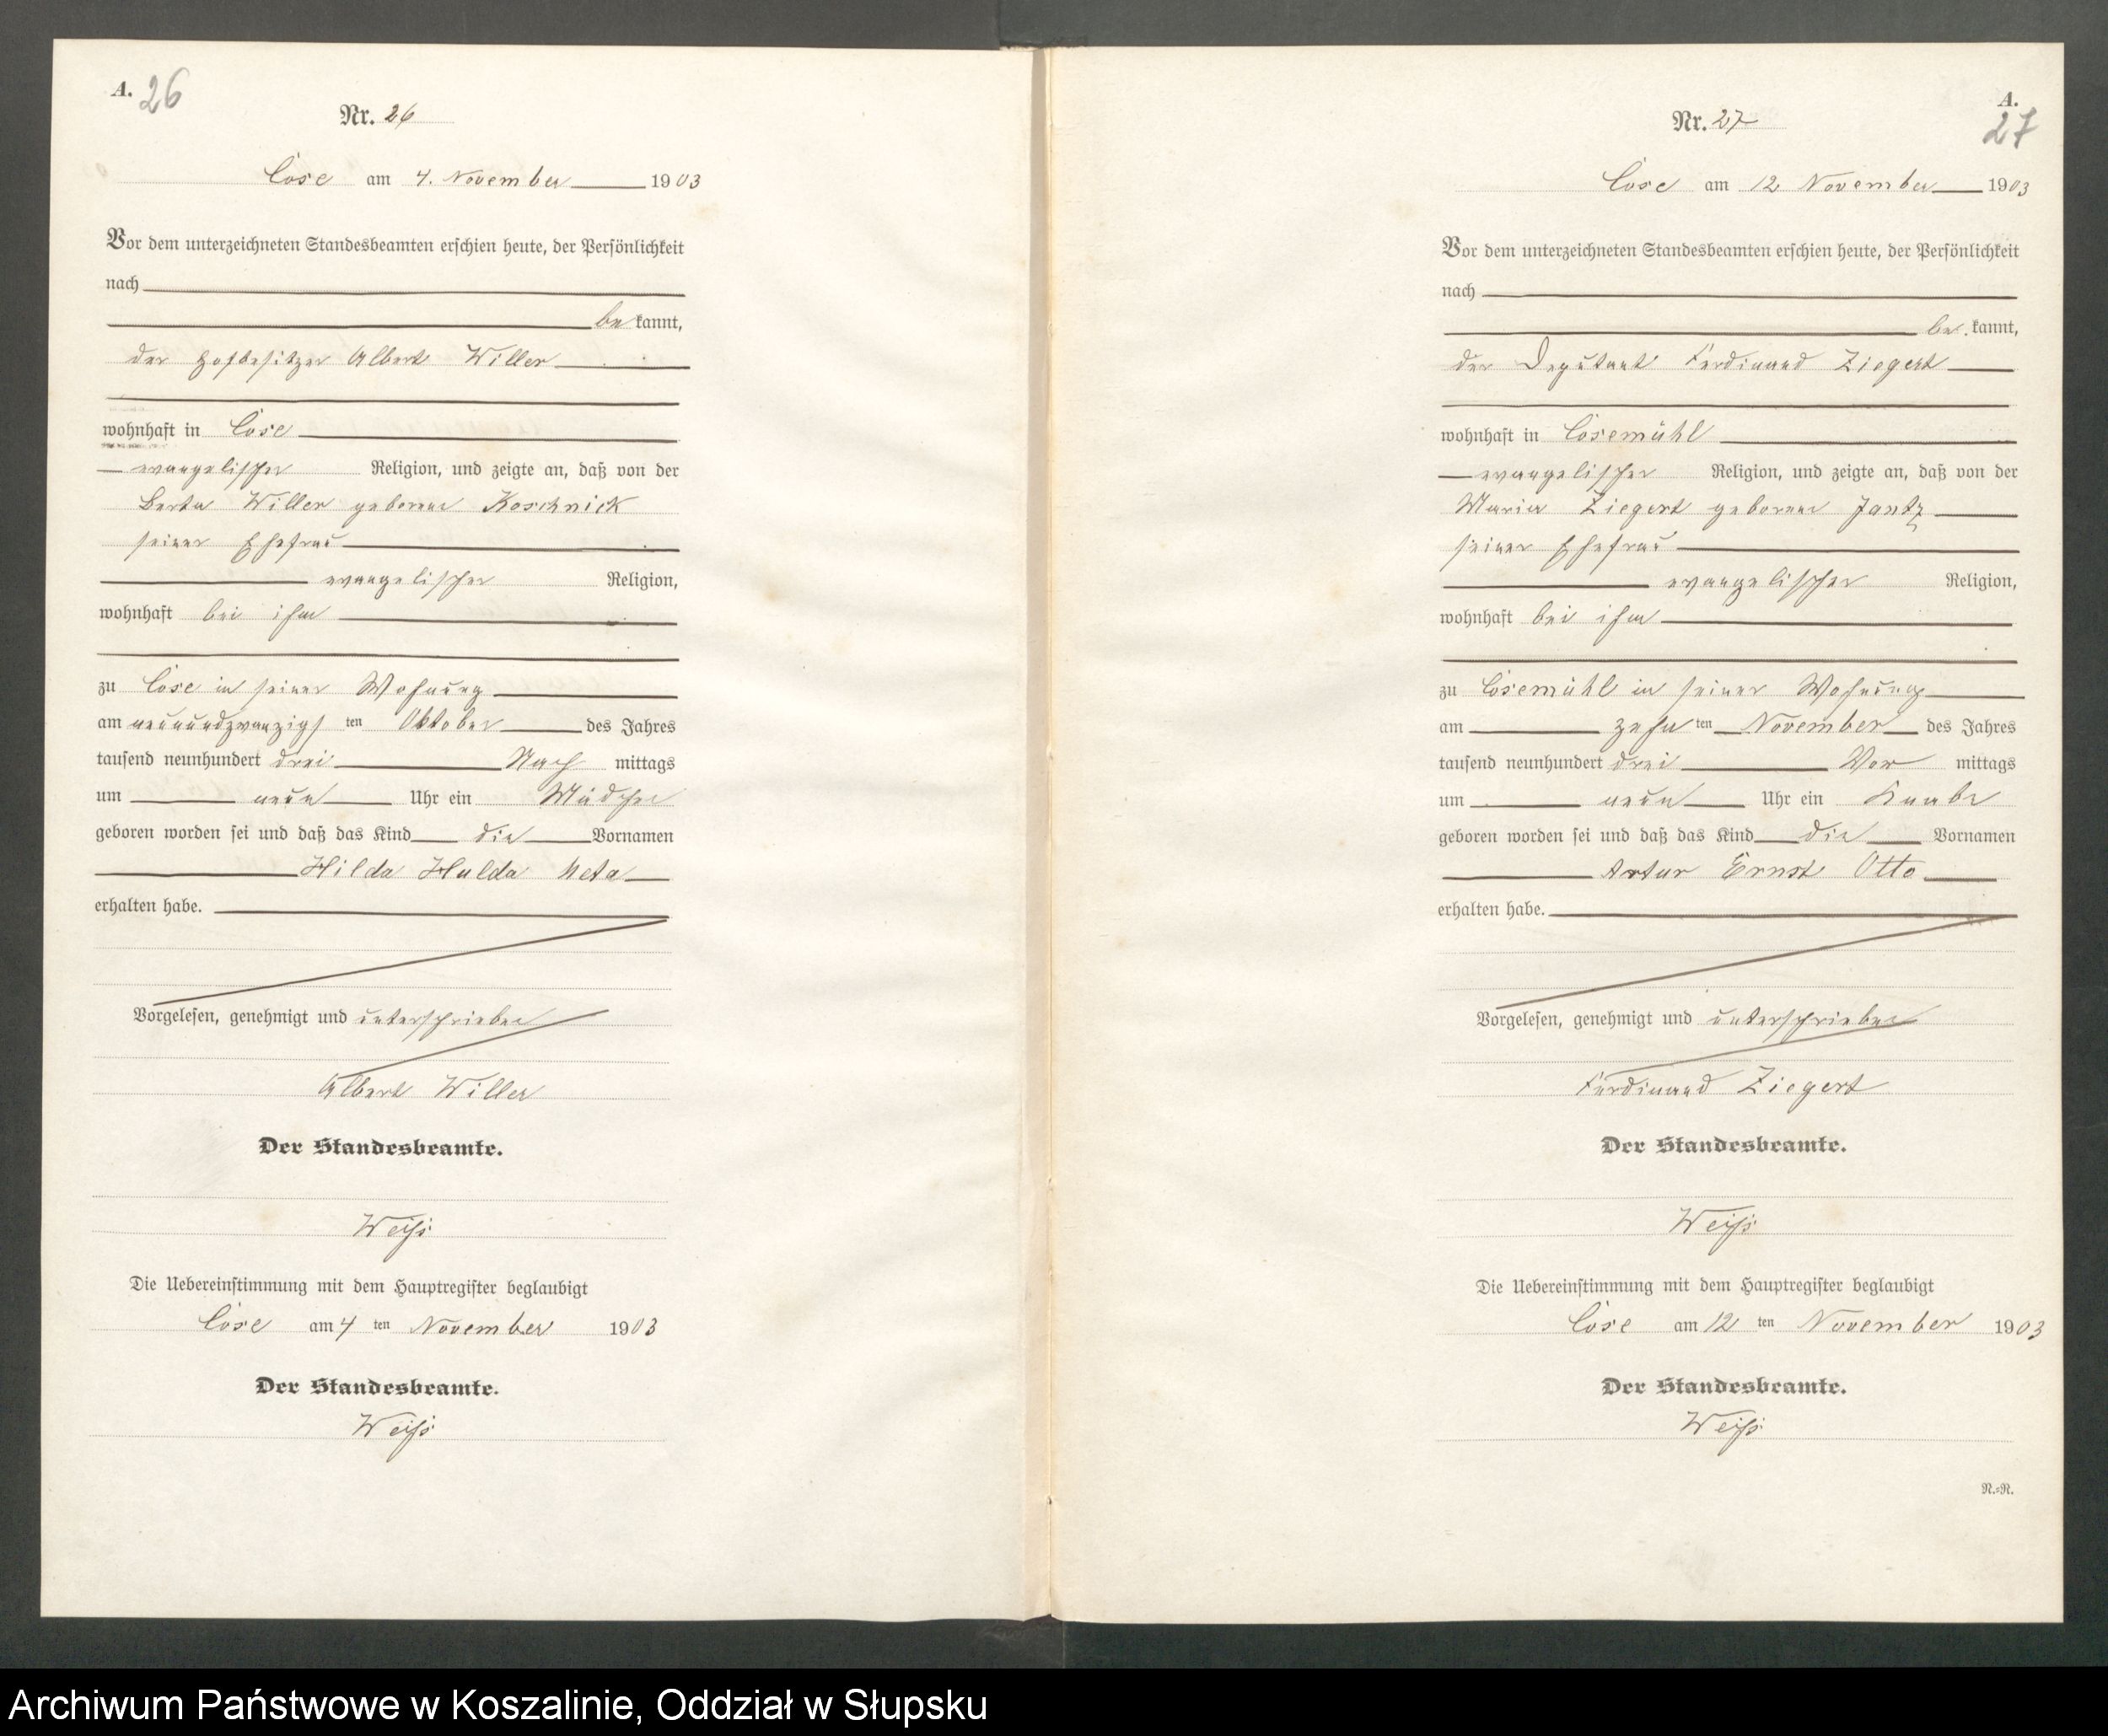 A. 26
Nr. 26
Cose am 4. November 1903
Vor dem unterzeichneten Standesbeamten erschien heute, der Persönlichkeit
nach
be kannt,
der Hofbesitzer Albert Willer
wohnhaft in Cose
evangelischer Religion, und zeigte an, daß von der
Berta Willer geborene Koschnick
seiner Ehefrau
evangelischer Religion,
wohnhaft bei ihm
zu Cose in seiner Wohnung
am neunundzwanzigs ten Oktober des Jahres
tausend neunhundert drei Nach mittags
um neun Uhr ein Mädchen
geboren worden sei und daß das Kind die Vornamen
Hilda Hulda Meta
erhalten habe.
Vorgelesen, genehmigt und unterschrieben
Albert Willer
Der Standesbeamte.
Weiß
Die Uebereinstimmung mit dem Hauptregister beglaubigt
Cose am 4 ten November 1903
Der Standesbeamte.
Weiß
A.
27
Nr. 27
Cose am 12 November 1903
Vor dem unterzeichneten Standesbeamten erschien heute, der Persönlichkeit
nach
be kannt,
der Deputant Ferdinand Ziegert
wohnhaft in Cosemühl
evangelischer Religion, und zeigte an, daß von der
Maria Ziegert geborene Jantz
seiner Ehefrau
evangelischer Religion,
wohnhaft bei ihm
zu Cosemühl in seiner Wohnung
am zehn ten November des Jahres
tausend neunhundert drei Vor mittags
um neun Uhr ein Knabe
geboren worden sei und daß das Kind die Vornamen
Artur Ernst Otto
erhalten habe.
Vorgelesen, genehmigt und unterschrieben
Ferdinand Ziegert
Der Standesbeamte.
Weiß
Die Uebereinstimmung mit dem Hauptregister beglaubigt
Cose am 12 ten November 1903
Der Standesbeamte.
Weiß
N.=N.
Archiwum Państwowe w Koszalinie, Oddział w Słupsku